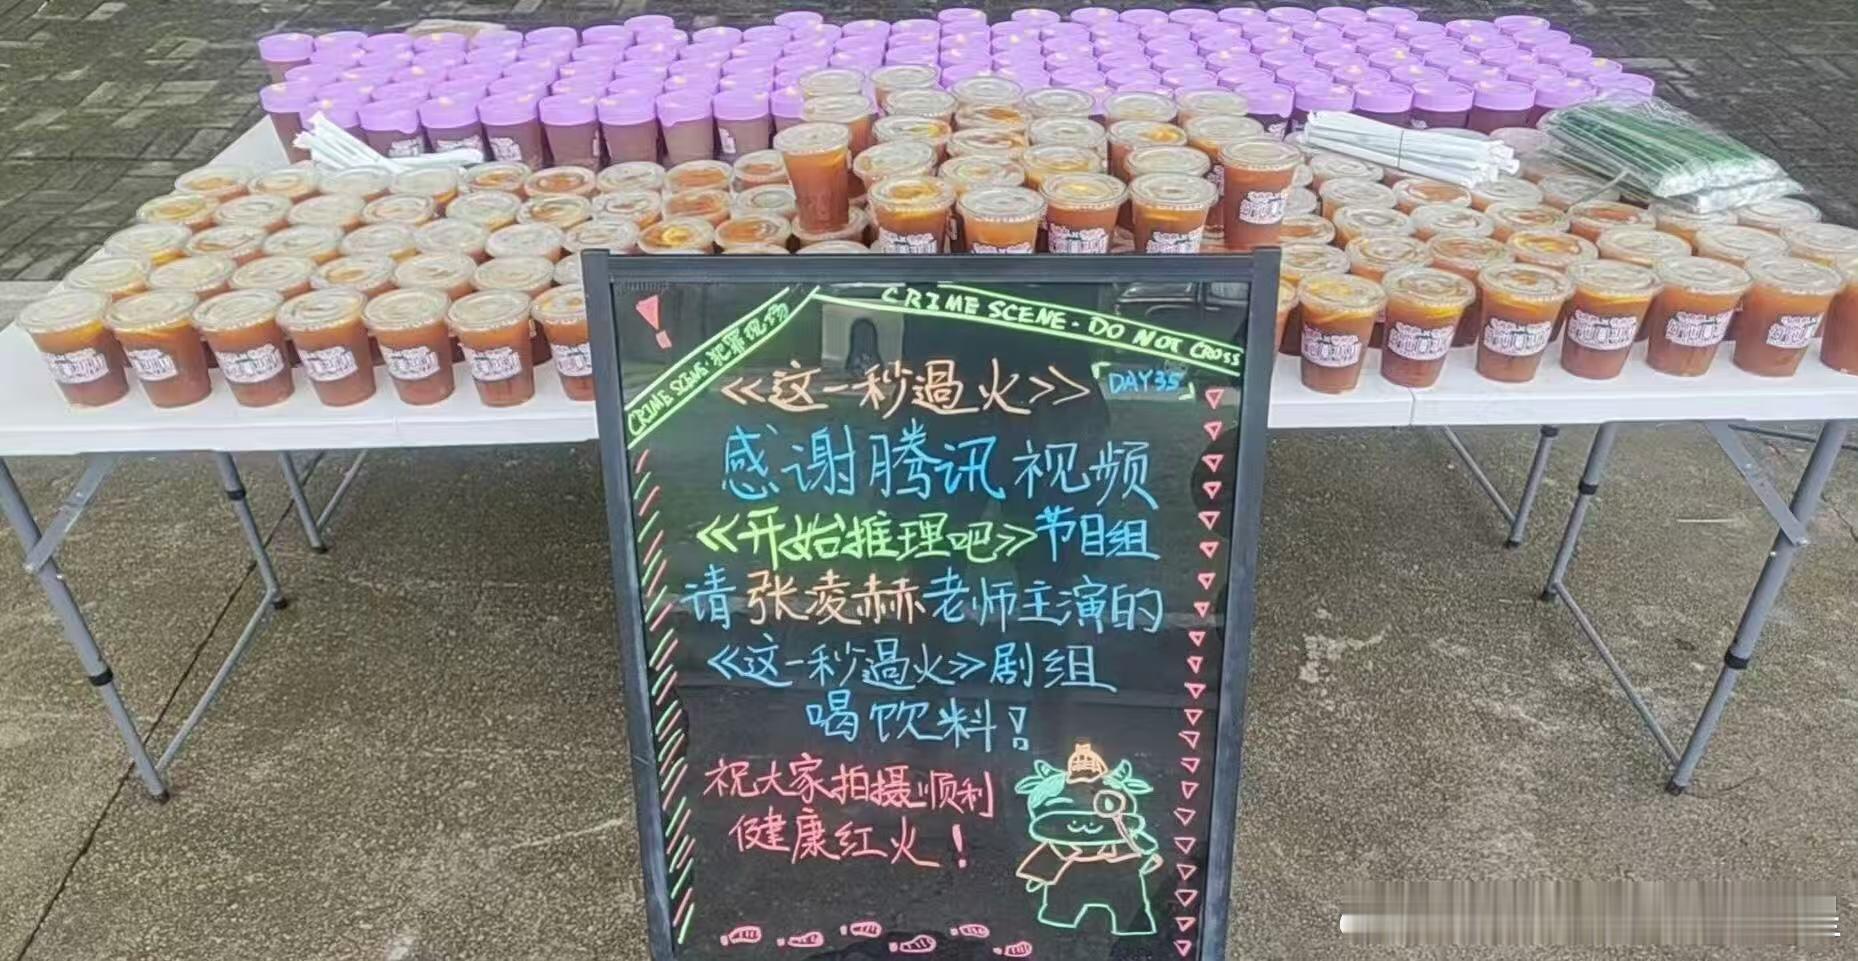 CRIME SCENE·犯罪现场
CRIME SCENE·DO NOT CROSS
<<这一秒過火>>
DAY35
感谢腾讯视频
<<开始推理吧>>节目组
请张凌赫老师主演的
<<这一秒過火>>剧组
喝饮料!
祝大家拍摄顺利
健康红火!